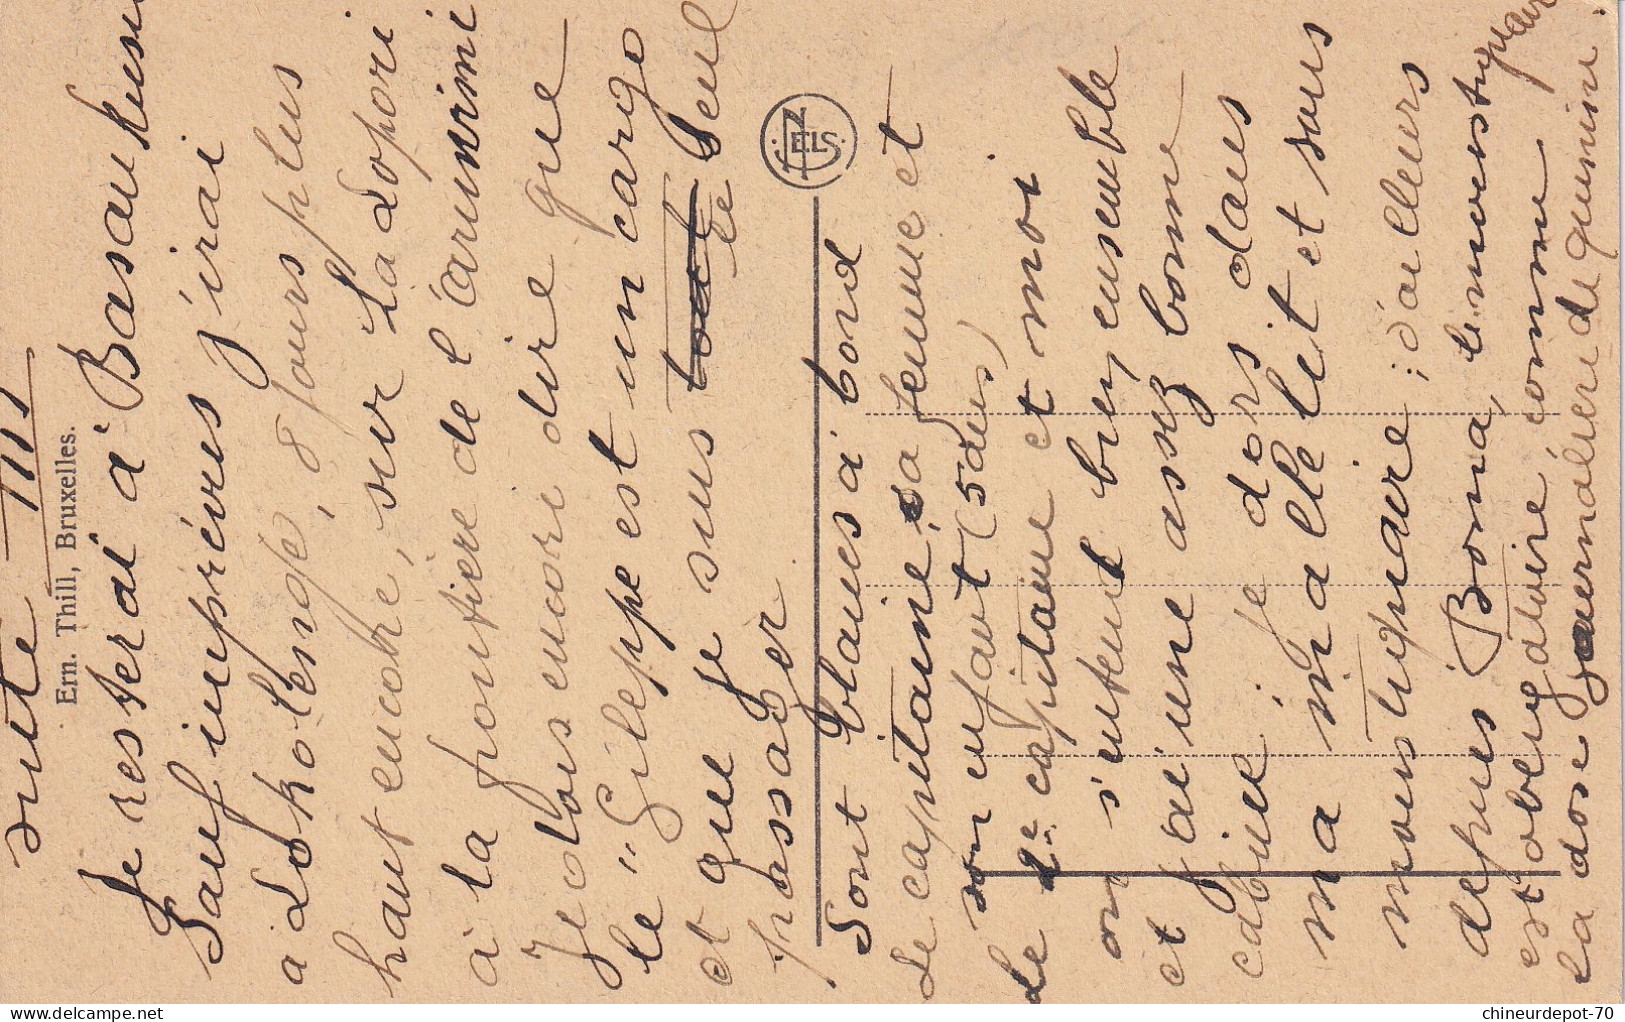 suite III
Ern. Thill, Bruxelles.
Je resterai à Basankusu
Sauf imprévus j'irai
à Lokolenge, 8 jours plus
haut encore, sur la Lopori
à la frontière de l'aruwimi
Je dois encore dire que
le "Gileppe est un cargo
et que je suis tout le seul
passager
NELS
Sont blancs à bord
Le capitaine, sa femme et
son enfant (5 ans)
Le 2e capitaine et moi
on s'entend bien, ensemble
et j'ai une assez bonne
cabine je dors dans
ma malle lit et sous
moustiquaire; d'ailleurs
depuis Boma, le moustiquaire
est obligatoire, comme
la dose journalière de quinine.
chineurdepot-70